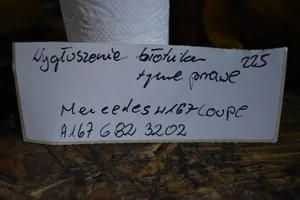 Wygłuszenie błotnika 225
tylne prawe
Mercedes W167 Coupe
A167 682 3202